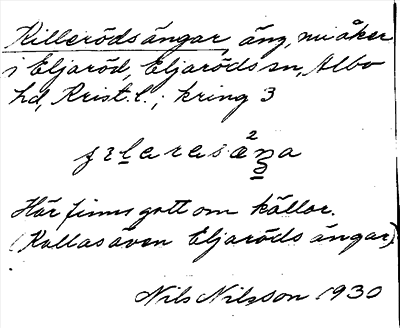 Killerödsängar, äng, nu åker
i Eljaröd, Eljaröds sn, Albo
hd, Krist. l.; kring 3
Här finns gott om källor.
(Kallas även Eljaröds ängar)
Nils Nilsson 1930